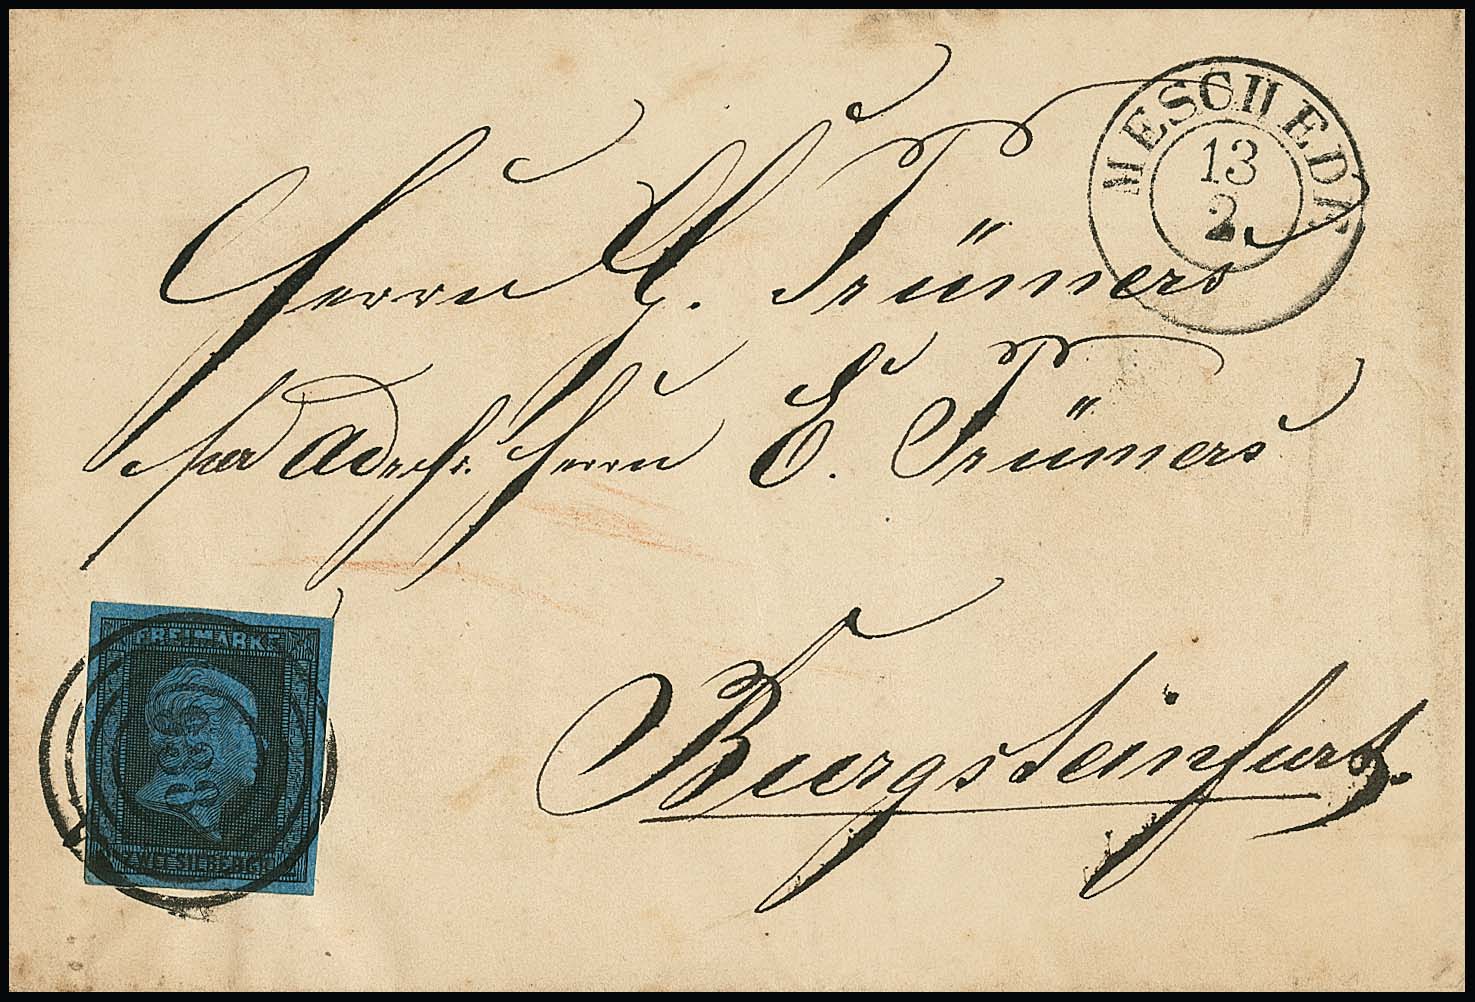 MESCHEDE
13
2
Herrn G. Trümers
per Adresse Herrn E. Trümers
Burgsteinfurt.
FREIMARKE
ZWEI SILBERGR